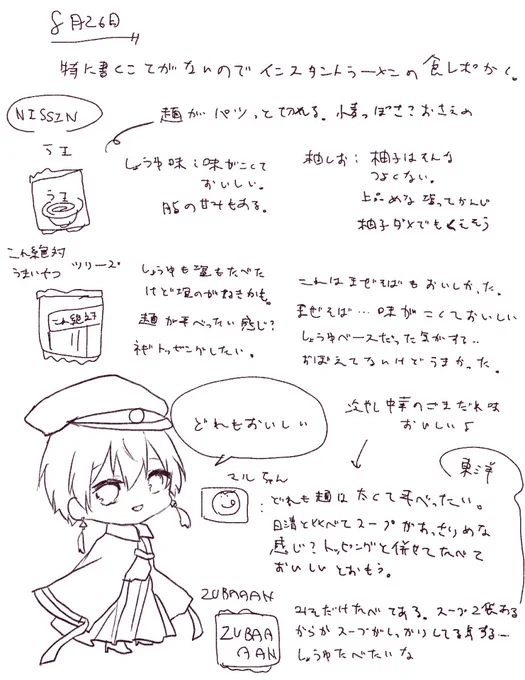 8月26日
特に書くことがないのでインスタントラーメンの食レポかく。
NISSIN
麺がパツッと切れる。小麦っぽさ?おさえめ
ラ王
しょうゆ味:味がこくて
おいしい。
脂の甘サもある。
柚しお:柚子はそんな
つよくない。
上品めな塩ってかんじ
柚子ダメでもくえそう
ラ王
これ絶対
うまいやつ シリーズ
これ絶対
しょうゆも塩もたべた
けど塩のがすきかも。
麺が平べったい感じ?
ネギトッピングしたい。
これはまぜそばもおいしかった。
まぜそば…味がこくておいしい
しょうゆベースだった気がする…
おぼえてないけどうまかった。
どれもおいしい
冷やし中華のごまだれは
おいしい
東洋
マルちゃん
:どれも麺は太くて平べったい。
日清と比べてスープがあっさりめな
感じ?トッピングと併せてたべて
おいしいとおもう。
ZUBAAAN
ZUBAA
AAN
みそだけたべてある。スープ2個ある
からかスープがしっかりしてる気する…
しょうゆたべたいな